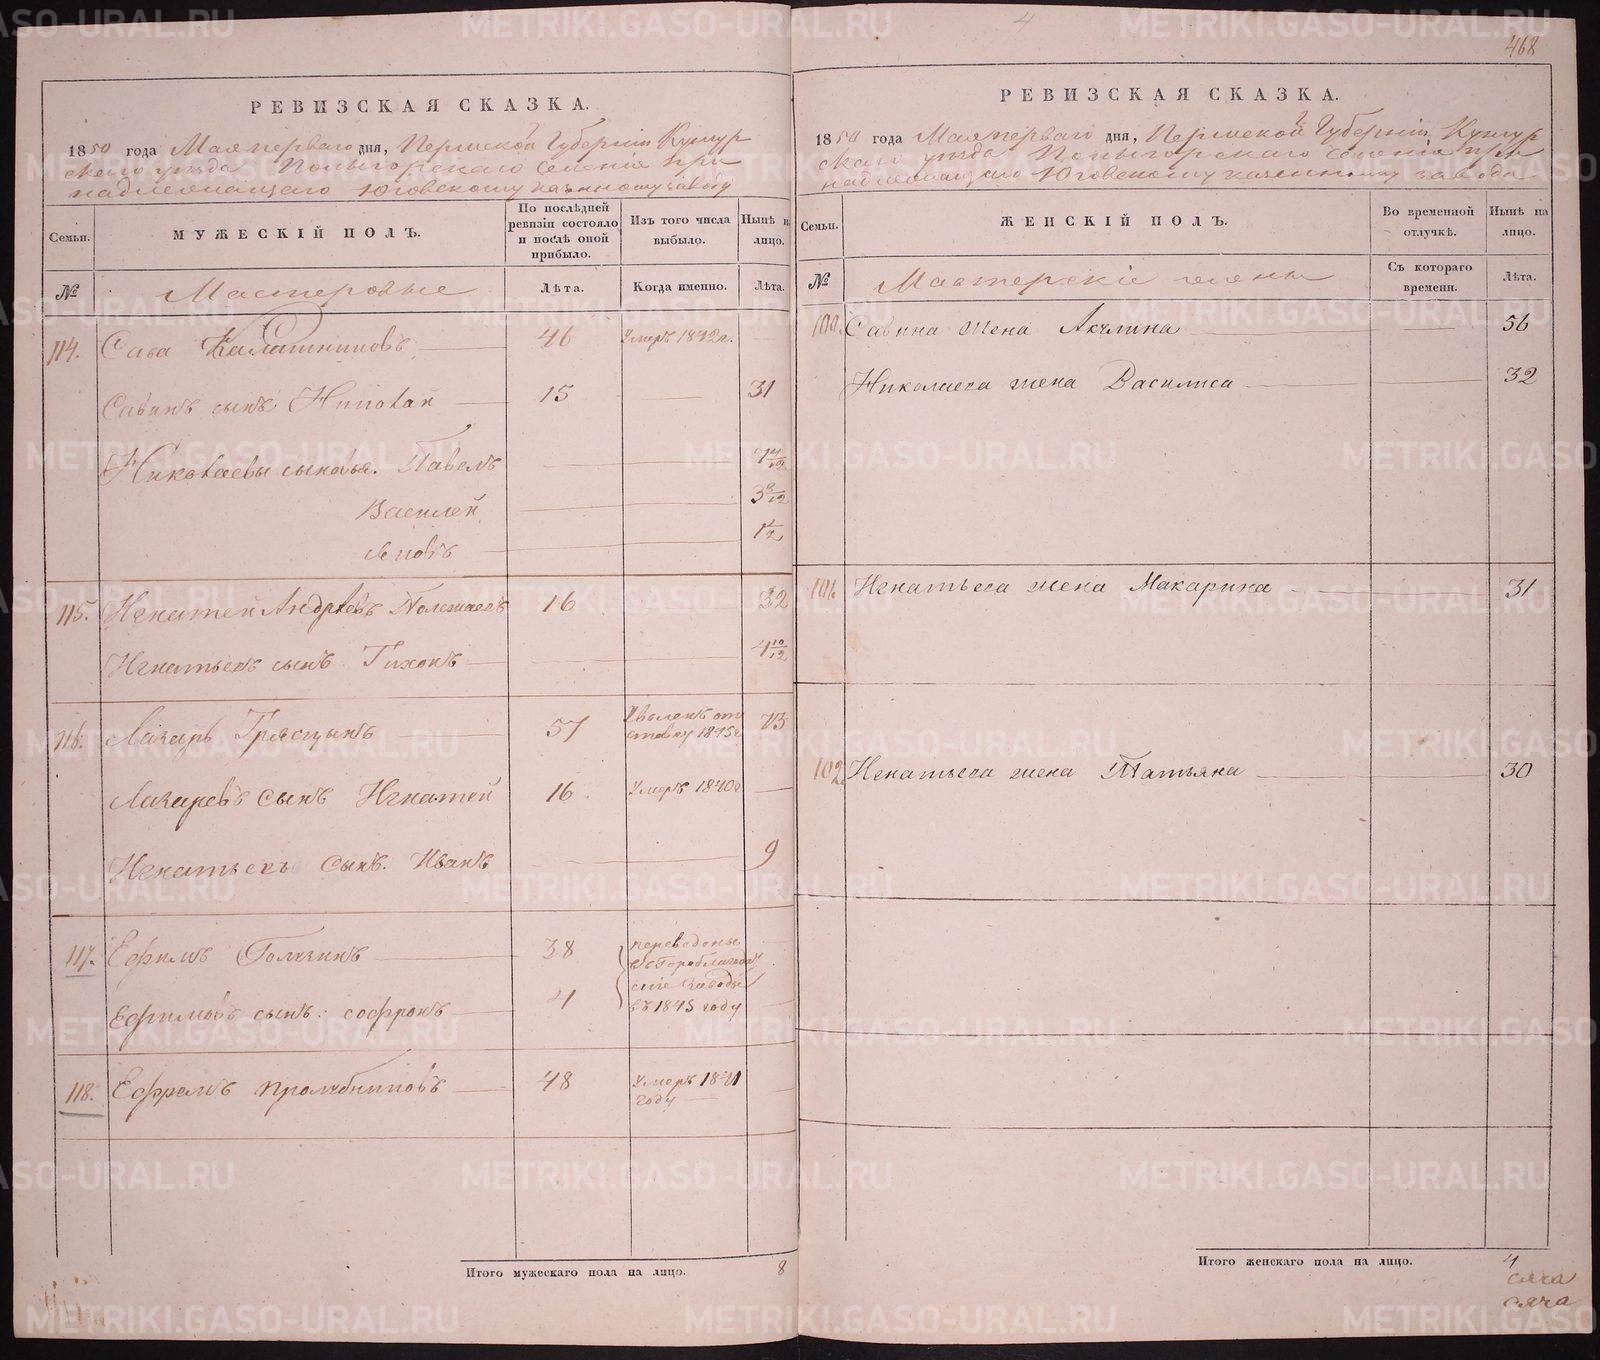 468
РЕВИЗСКАЯ СКАЗКА.
1850 года Мая перваго дня, Пермской Губернiи Кунгур
скаго уѣзда Копыгорскаго селенiя при
надлежащаго Юговскому казенному заводу
Семьи.
МУЖЕСКIЙ ПОЛЪ.
По послѣдней ревизiи состояло и послѣ оной прибыло.
Изъ того числа выбыло.
Нынѣ на лицо.
№
Мастеровые
Лѣта.
Когда именно.
Лѣта.
114. Сава Калашниковъ 46 Умеръ 1842 г.
Савинъ сынъ Николай 15 31
Николаевы сыновья. Павелъ
Василей 3 9/12
Яковъ 1/2
115. Игнатей Андреевъ Полежаевъ 16 32
Игнатьевъ сынъ Тихонъ 4 10/12
116. Лазарь Грясцынъ 57 Уволенъ от
ставку 1845 г 73
Лазаревъ сынъ Игнатей 16 Умеръ 1840 г
Игнатьевъ сынъ. Иванъ 9
117. Ефимъ Голузинъ 38 переведены
въ Гороблагодат
скiе заводы
Ефимовъ сынъ: софронъ 4 въ 1843 году
118. Ефремъ Пролубниковъ 48 Умеръ 1841
году
Итого мужескаго пола на лицо. 8
РЕВИЗСКАЯ СКАЗКА.
1850 года Мая перваго дня, Пермской Губернiи Кунгур
скаго уѣзда Копыгорскаго селенiя при
надлежащаго Юговскому казенному заводу
Семьи.
ЖЕНСКIЙ ПОЛЪ.
Во временной отлучкѣ.
Нынѣ на лицо.
№
Мастерскiе жены
Съ котораго времени.
Лѣта.
100. Савина жена Акулина 56
Николаева жена Василиса 32
101. Игнатьева жена Макарина 31
102. Игнатьева жена Татьяна 30
Итого женскаго пола на лицо. 4
METRIKI.GASO-URAL.RU